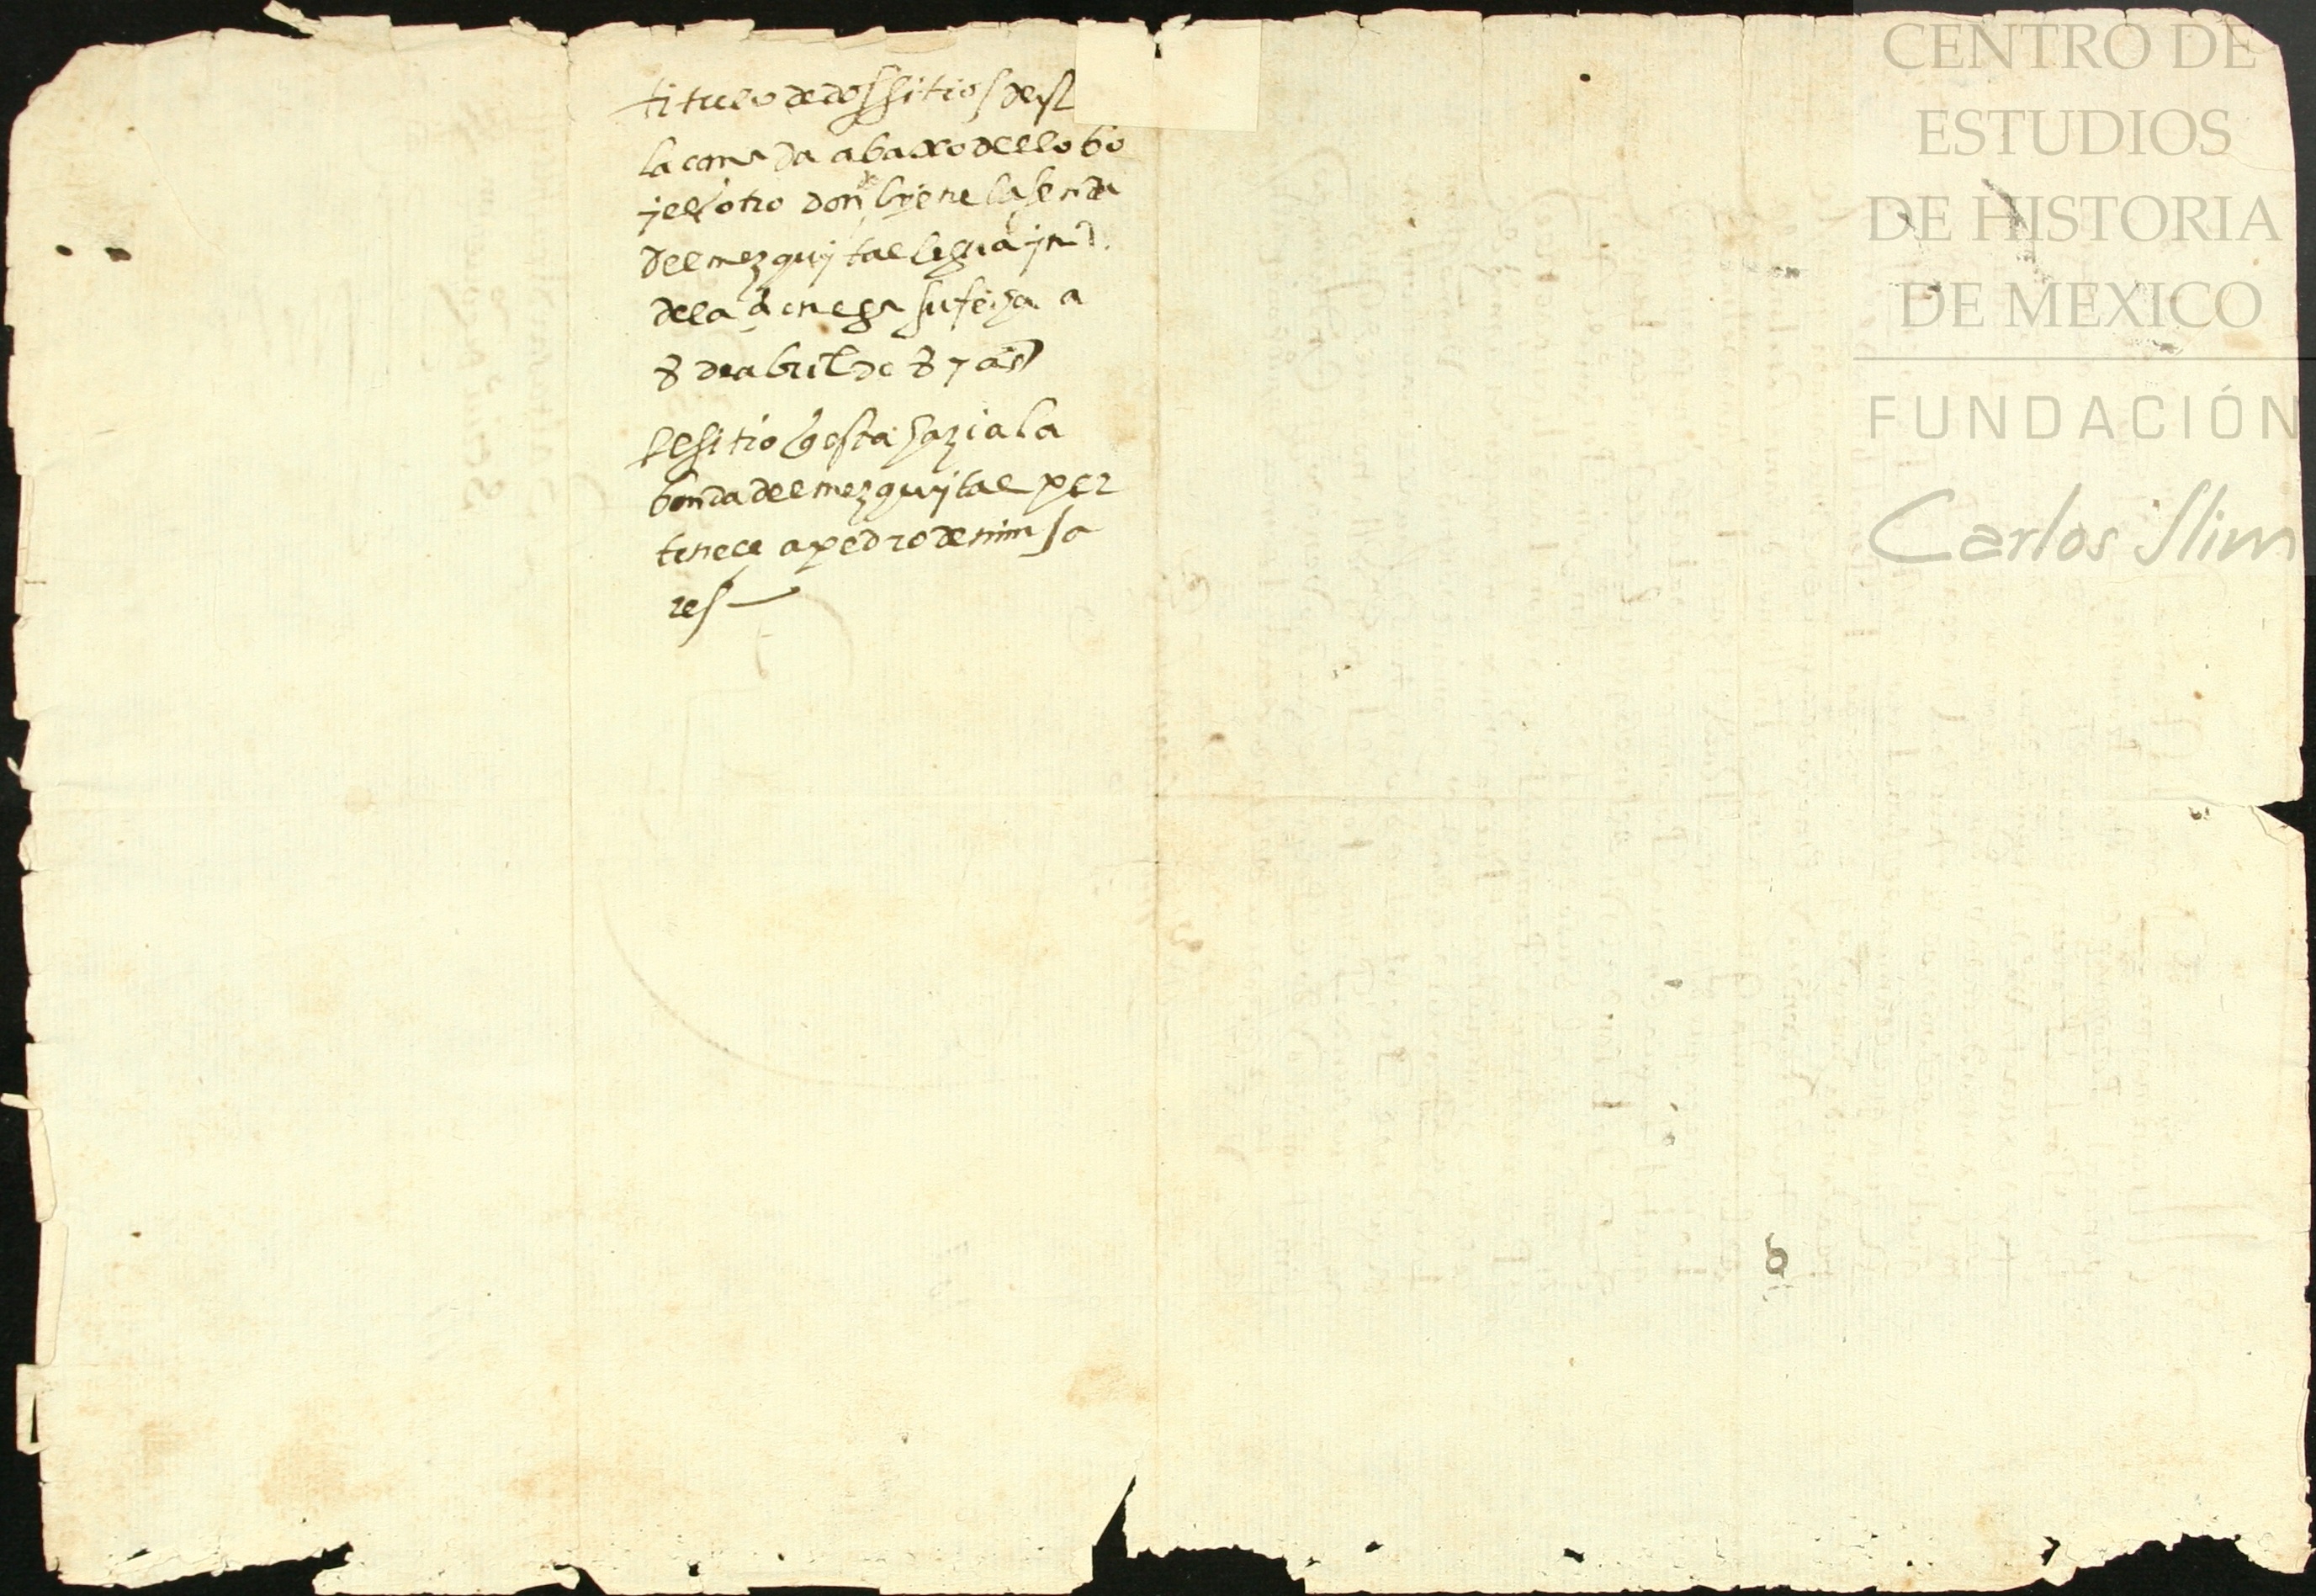 titulo de dos sitios de
la cañada abaxo del lobo
y el otro donde byene la senda
del mezquytal legua y m̃
de la çienega su fecha a
8 de abril de 87 as
el sitio q esta hazia la
banda del mezquytal per
tenece a pedro de mim ja
res
6
CENTRO DE
ESTUDIOS
DE HISTORIA
DE MEXICO
FUNDACIÓN
Carlos Slim